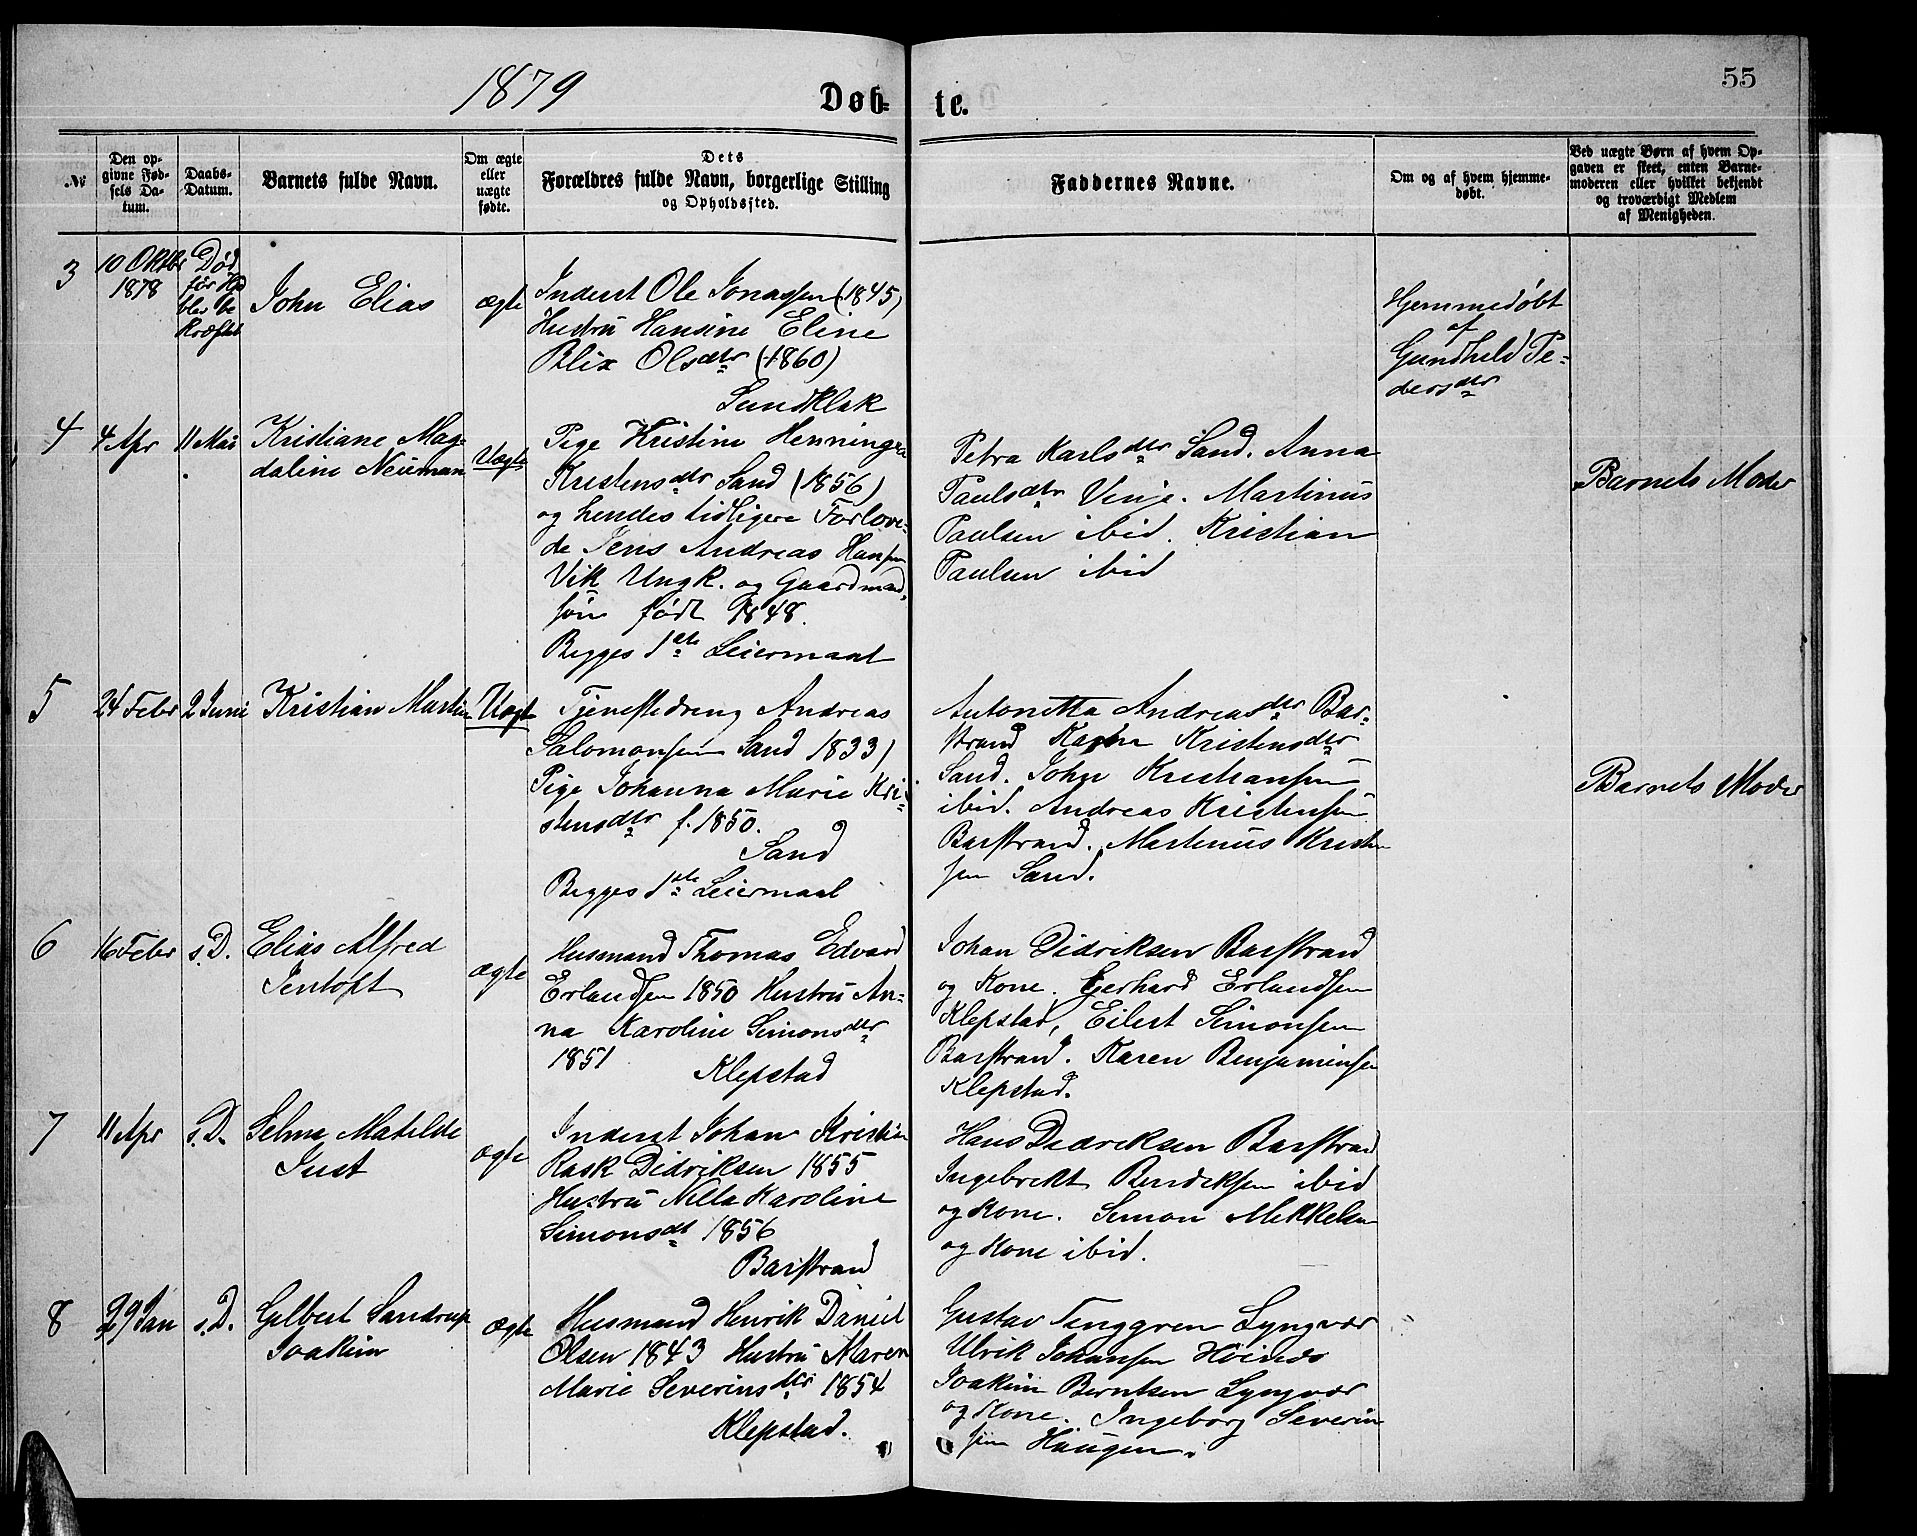 1879
Døb-
te.
55
№
Den op-
givne Fød-
sels Da-
tum.
Daabs-
Datum.
Barnets fulde Navn.
Om ægte
eller
uægte
fødte.
Dets
Forældres fulde Navn, borgerlige Stilling
og Opholdssted.
Faddernes Navne.
Om og af hvem hjemme-
døbt.
Ved uægte Børn af hvem Op-
gaven er skeet, enten Barne-
moderen eller hvilket bekjendt
og troværdigt Medlem
af Menigheden.
3
10 Oktbr
1878
Død
før
blev be
kræftet
John Elias
ægte
Inderst Ole Jonassen (1845)
Hustru Hansine Eline
Blix Olsdtr (1860)
Sundklak
Hjemmedøbt
af
Gundhild Pe-
dersdtr
4
4 Apr
11 Mai
Kristiane Mag-
daline Neuman
Uægte
Pige Kristine Henningea
Kristensdtr Sand (1856)
og hendes tidligere Forlove-
de Jens Andreas Hansen
Vik Ungk. og Gaardmand-
søn født 1848.
Begges 1ste Leiermaal
Petra Karlsdtr Sand. Anna
Paulsdtr Vinje. Martinus
Paulsen ibid. Kristian
Paulsen ibid
Barnets Moder
5
24 Febr
2 Juni
Kristian Martin
Uægte
Tjenestedreng Andreas
Salomonsen Sand 1833)
Pige Johanna Marie Kri-
stensdtr f. 1850.
Sand
Begges 1ste Leiermaal
Antonetta Andreasdtr Bar-
strand Kristensdtr
Sand. John Kristiansen
ibid. Andreas Kristensen
Barstrand. Martinus Kristen
sen Sand.
Barnets Moder
6
16 Febr
s. D.
Elias Alfred
Jentoft
ægte
Husmand Thomas Edvard
Erlandsen 1850 Hustru An-
na Karoline Simonsdtr
1851
Klepstad
Johan Didriksen Barstrand
og Kone. Gerhard Erlandsen
Klepstad, Eilert Simonsen
Barstrand. Karen Benjaminsen
Klepstad.
7
11 Apr
s. D.
Selma Matilde
Just
ægte
Inderst Johan Kristian
Rask Didriksen 1855
Hustru Nella Karoline
Simonsdt 1856
Barstrand
Hans Dedriksen Barstrand
Ingebrekt Bendiksen ibid
og Kone. Simon Mikkelsen
og Kone ibid.
8
29 Jan
s. D.
Gilbert Sandrup
Joakim
ægte
Husmand Henrik Daniel
Olsen 1843 Hustru Maren
Marie Severinsdtr 1854
Klepstad.
Gustav Tenggren Lyngvær
Ulrik Johansen Høinæs
Joakim Berntsen Lyngvær
og Kone. Ingeborg Severin
sen Haugen.